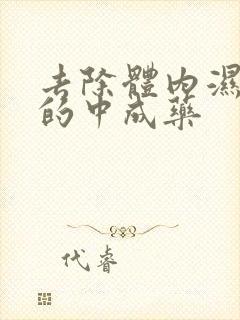 去除體內濕
的中成藥
代睿